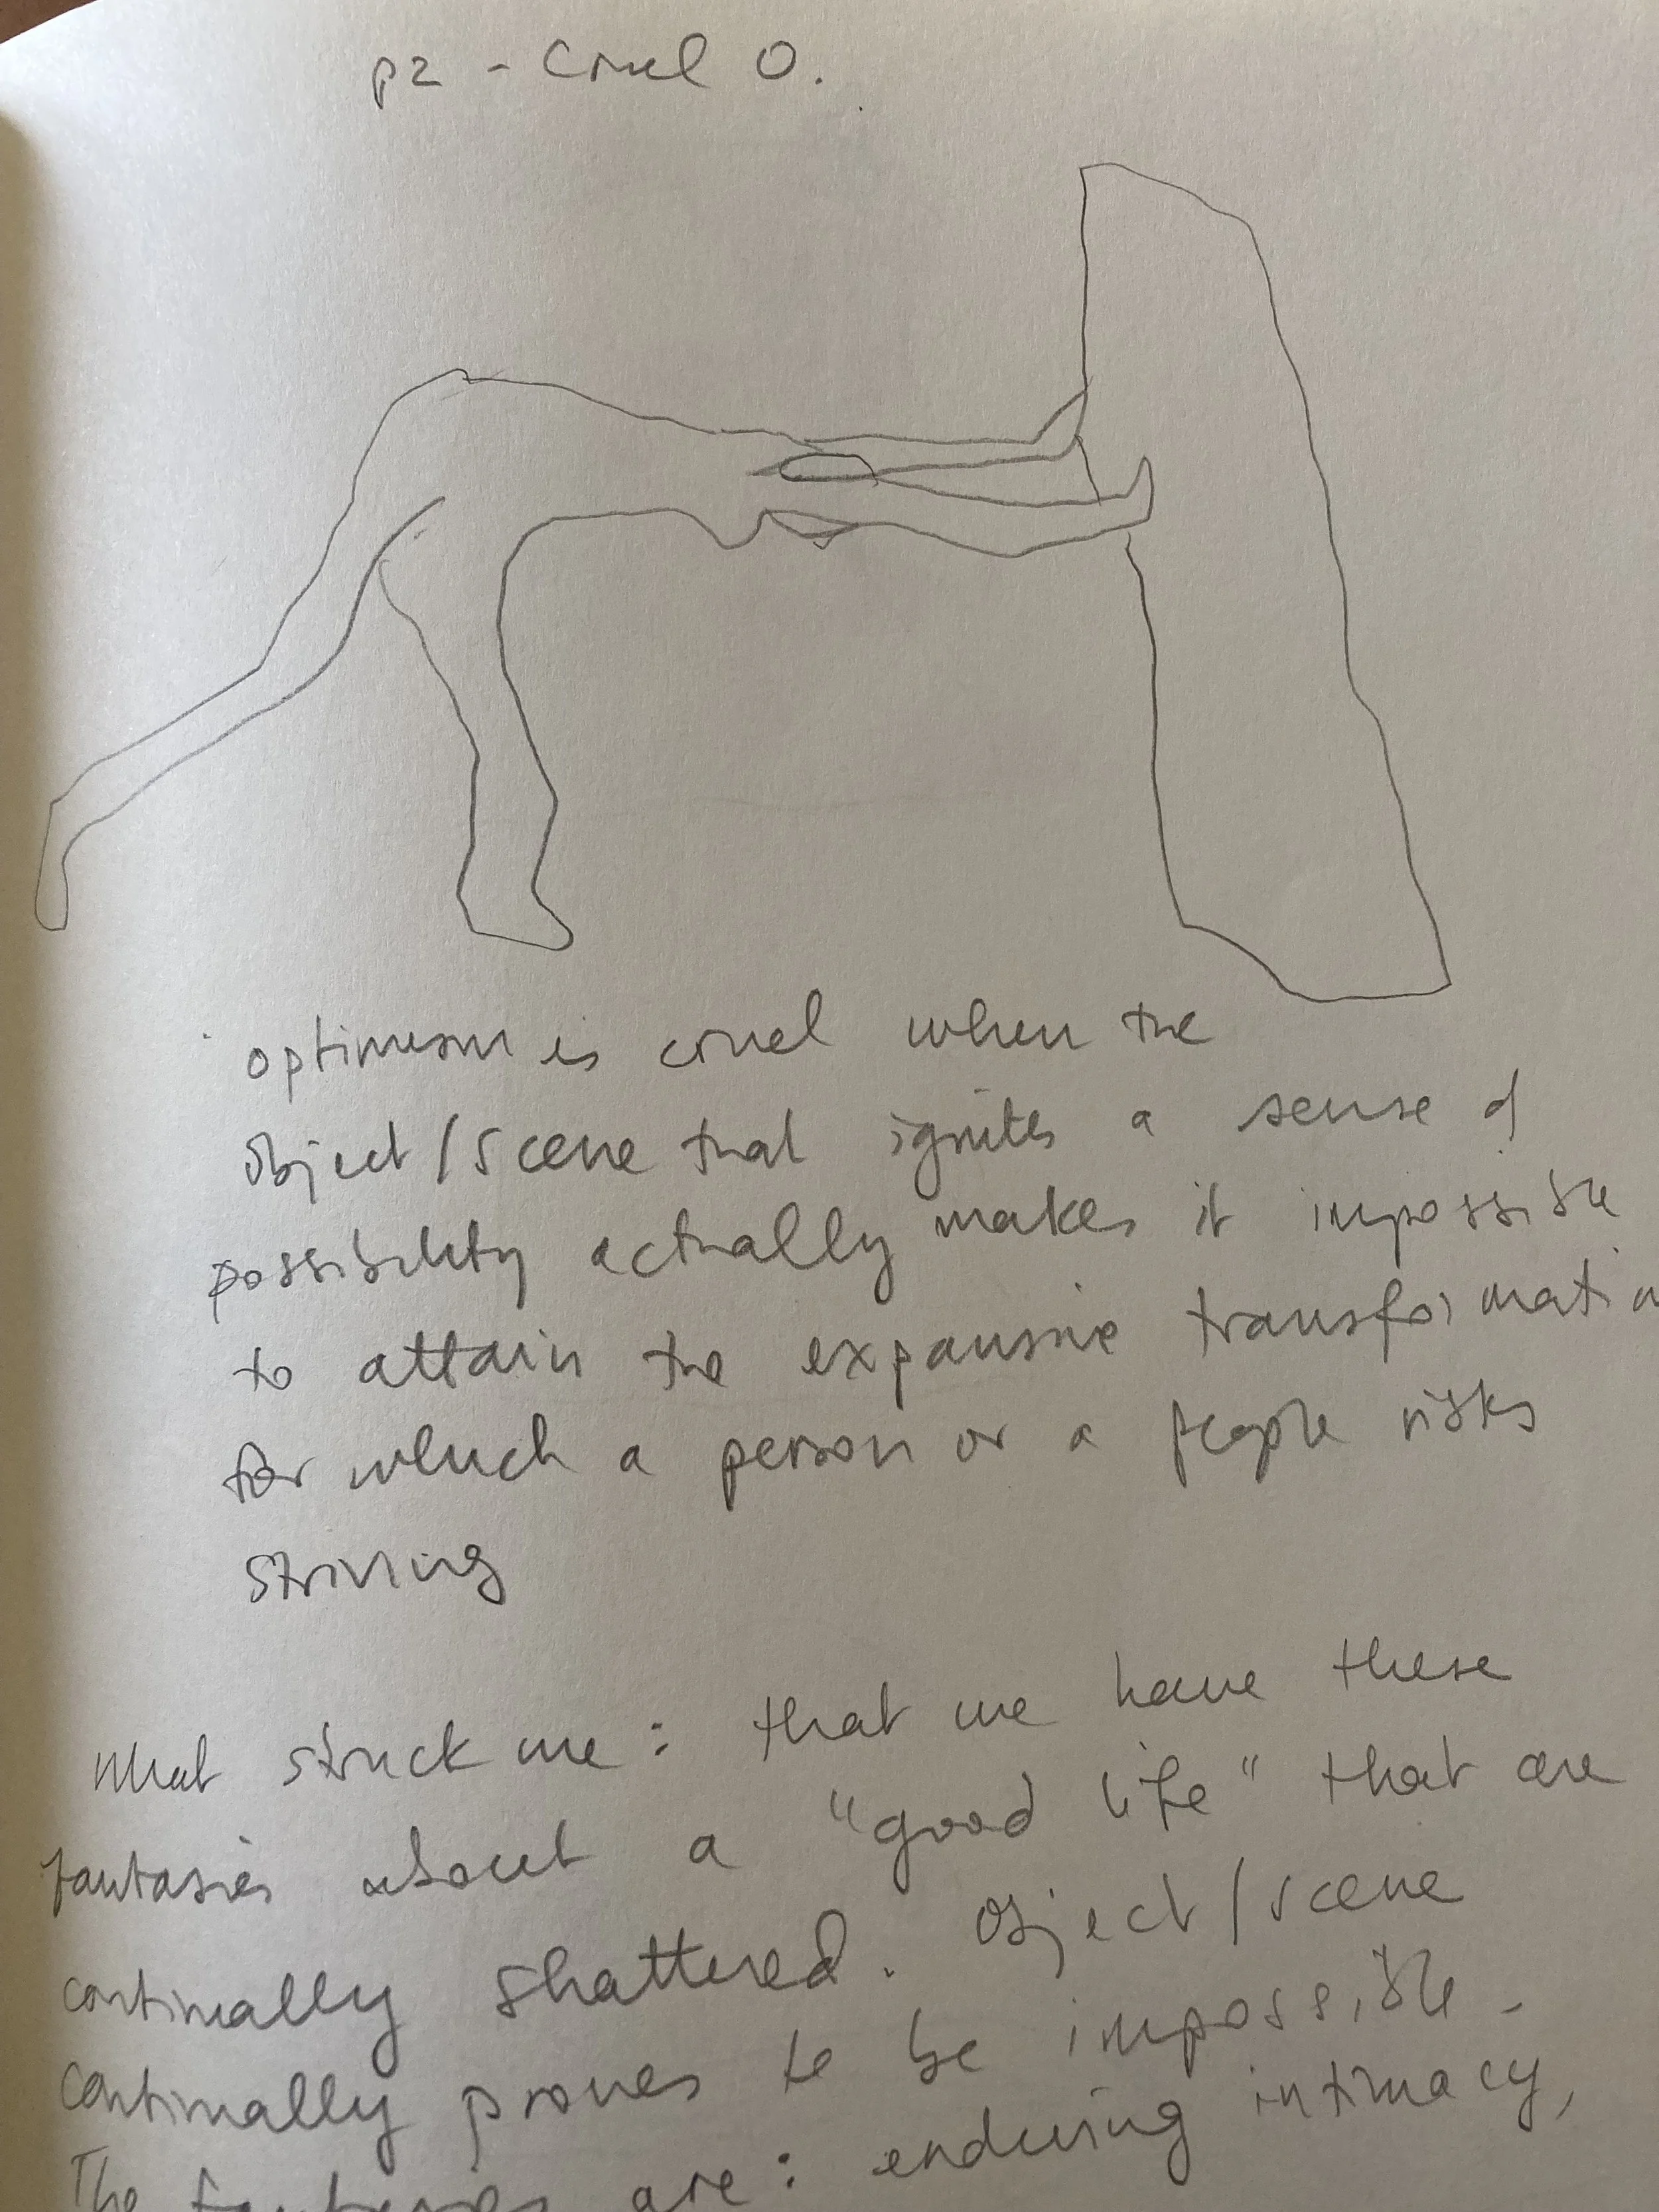 p2 - Cruel O.
optimism is cruel when the
object/scene that ignites a sense of
possibility actually makes it impossible
to attain the expansive transformatio
for which a person or a people risks
striving
What struck me: that we have these
fantasies about a "good life" that are
continually shattered. Object/scene
continually proves to be impossible.
The fantasies are: enduring intimacy,